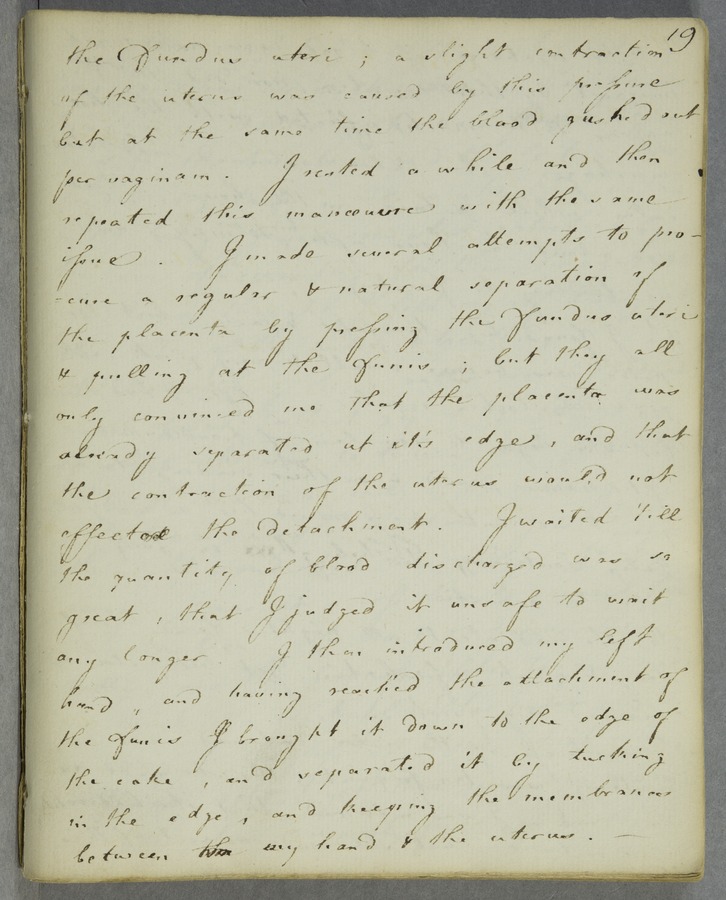 19
the Fundus uteri ; a slight contraction
of the uterus was caused by this pressure
but at the same time the blood gushed out
per vaginam . I rested a while and then
repeated this manoeuvre with the same
issue . I made several attempts to pro-
-cure a regular & natural separation of
the placenta by pressing the Fundus uteri
& pulling at the Funis ; but they all
only convinced me that the placenta was
already separated at it's edge , and that
the contraction of the uterus would not
effect the detachment . I waited 'till
the quantity of blood discharged was so
great , that I judged it unsafe to wait
any longer . I then introduced my left
hand , and having reached the attachment of
the Funis I brought it down to the edge of
the cake , and separated it by tucking
in the edge , and keeping the membranes
between my hand & the uterus . —